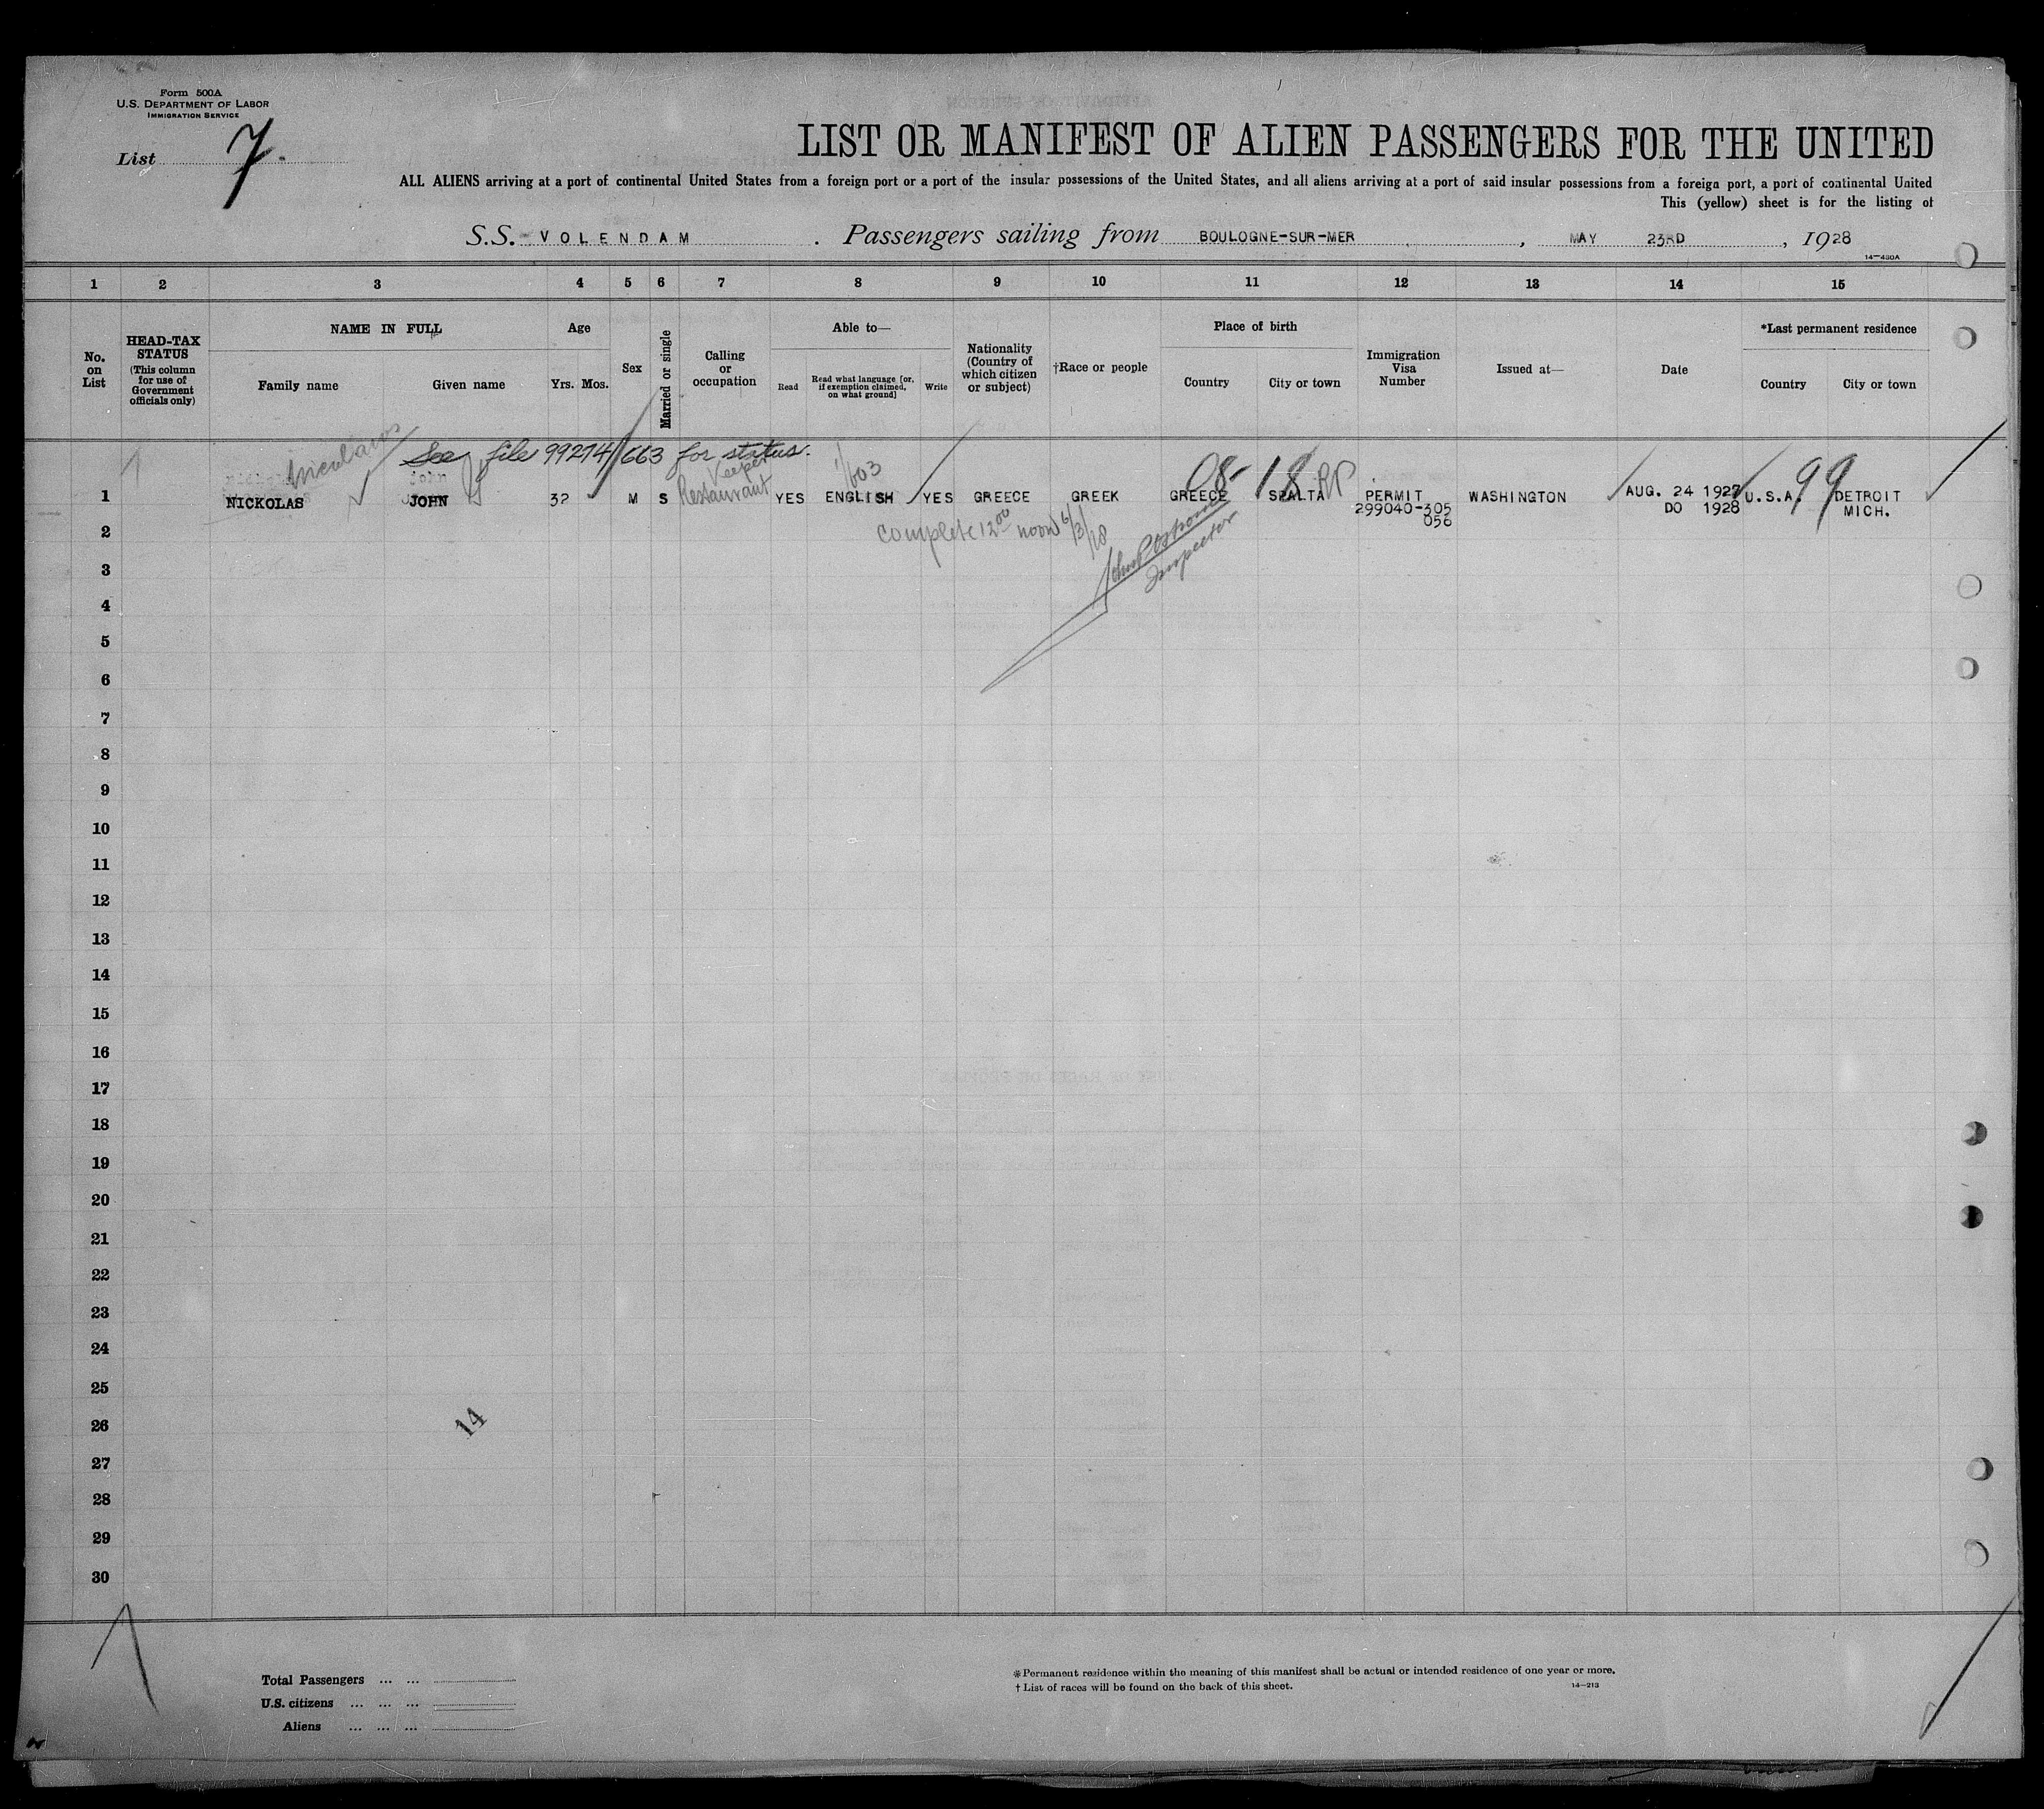 Form 500A
U.S. DEPARTMENT OF LABOR
IMMIGRATION SERVICE
List 7.
LIST OR MANIFEST OF ALIEN PASSENGERS FOR THE UNITED
ALL ALIENS arriving at a port of continental United States from a foreign port or a port of the insular possessions of the United States, and all aliens arriving at a port of said insular possessions from a foreign port, a port of continental United
This (yellow) sheet is for the listing of
S.S. VOLENDAM . Passengers sailing from BOULOGNE-SUR-MER , MAY 23RD , 1928
14—430A
1 2 3 4 5 6 7 8 9 10 11 12 13 14 15
No. on List
HEAD-TAX STATUS (This column for use of Government officials only)
NAME IN FULL
Family name Given name
Age
Yrs. Mos.
Sex
Married or single
Calling or occupation
Able to—
Read
Read what language [or, if exemption claimed, on what ground]
Write
Nationality (Country of which citizen or subject)
†Race or people
Place of birth
Country City or town
Immigration Visa Number
Issued at—
Date
*Last permanent residence
Country City or town
See file 99274/663 for status.
John
Keeper
603
Restaurant
08- 18 RP 99
1 NICKOLAS JOHN 32 M S YES ENGLISH YES GREECE GREEK GREECE SPALTA PERMIT WASHINGTON AUG. 24 1927 U.S.A. DETROIT
299040-305 DO 1928 MICH.
056
complete 12 00 noon 6/3/28
Inspector
2
3
4
5
6
7
8
9
10
11
12
13
14
15
16
17
18
19
20
21
22
23
24
25
26
14
27
28
29
30
Total Passengers ... ...
U.S. citizens ... ... ...
Aliens ... ... ...
*Permanent residence within the meaning of this manifest shall be actual or intended residence of one year or more.
† List of races will be found on the back of this sheet.
14—213